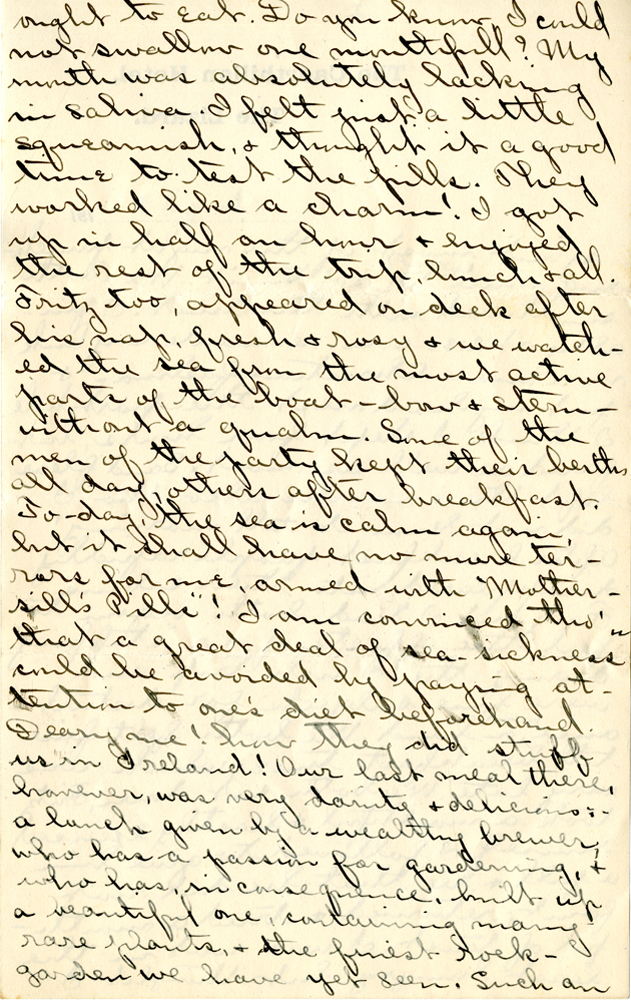 ought to eat. Do you know, I could
not swallow one mouthfull? My
mouth was absolutely lacking
in saliva. I felt just a little
squeamish, & thought it a good
time to test the pills. They
worked like a charm! I got
up in half an hour & enjoyed
the rest of the trip, lunch & all.
Fritz too, appeared on deck after
his nap, fresh & rosy & we watch-
ed the sea from the most active
parts of the boat - bow & stern -
without a qualm. Some of the
men of the party kept their berths
all day, others after breakfast.
To-day, the sea is calm again,
but it shall have no more ter-
rors for me, armed with "Mother-
sill's Pills"! I am convinced tho'
that a great deal of sea-sickness"
could be avoided by paying at-
tention to one's diet beforehand.
Deary me! how they did stuff
us in Ireland! Our last meal there,
however, was very dainty & delicious:-
a lunch given by a wealthy brewer,
who has a passion for gardening, &
who has, in consequence, built up
a beautiful one, containing many
rare plants, & the finest rock-
garden we have yet seen. Such an